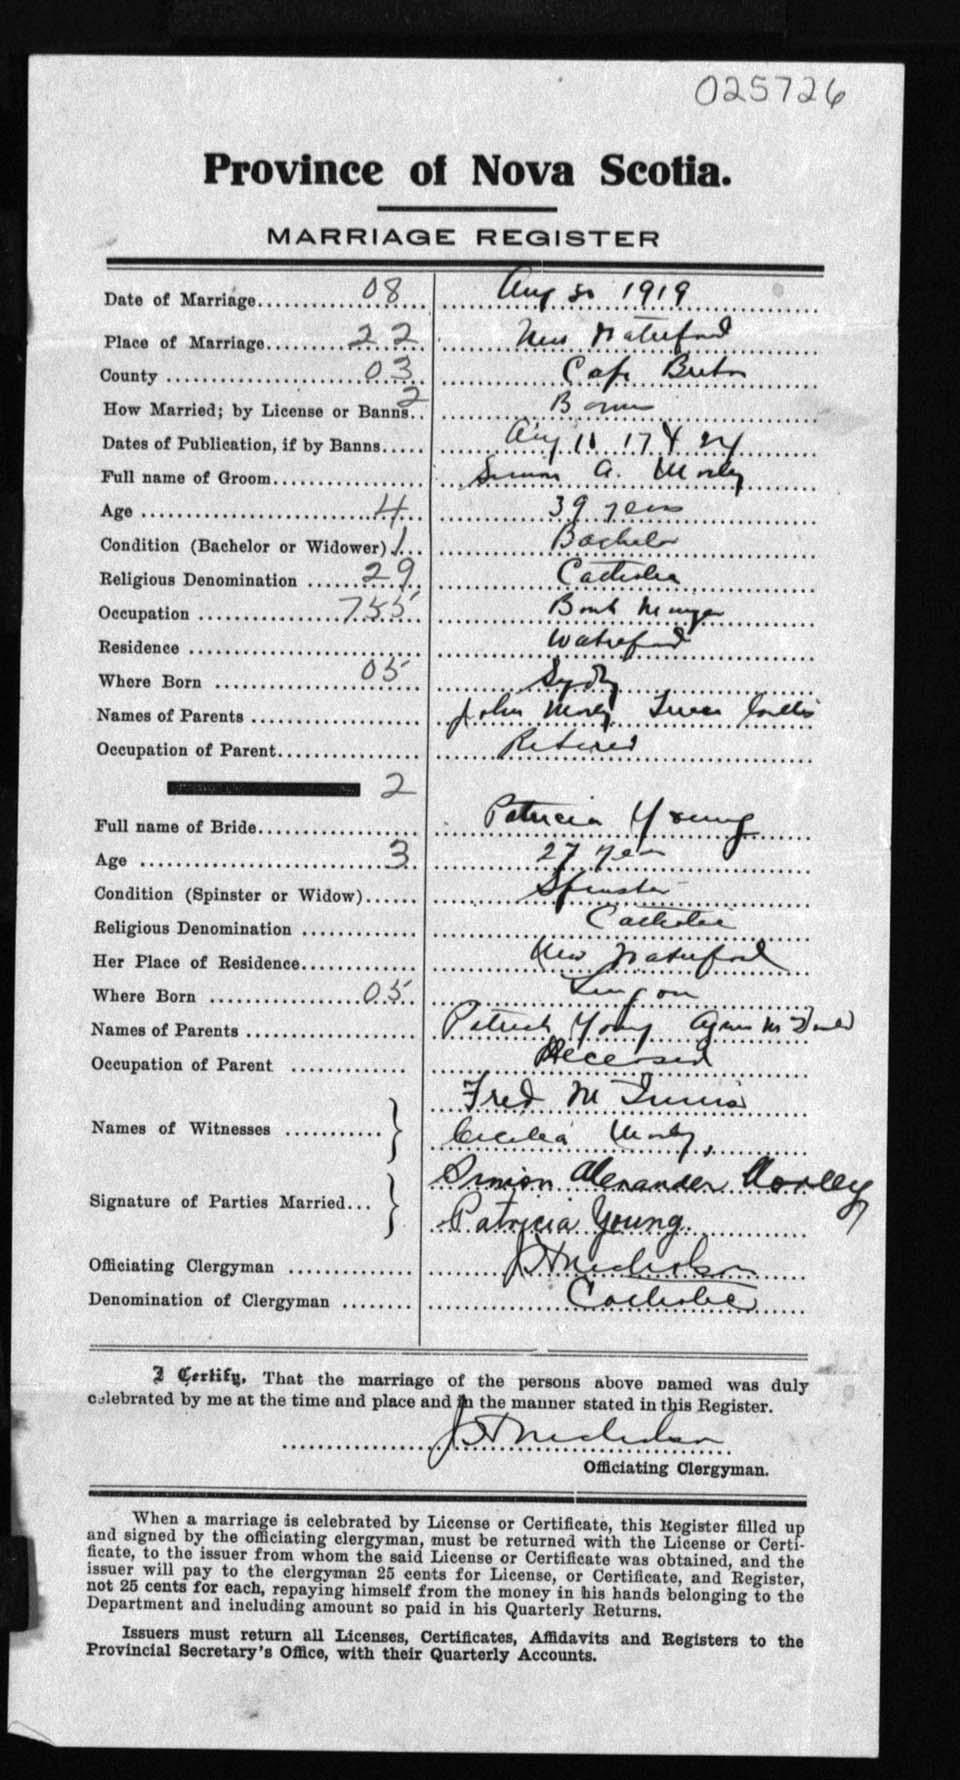 025726
Province of Nova Scotia.
MARRIAGE REGISTER
Date of Marriage 08 Aug 1919
Place of Marriage 22 New Waterford
County 03 Cape Breton
How Married; by License or Banns 2 Banns
Dates of Publication, if by Banns Aug 17 & 24
Full name of Groom Simon A. Morley
Age 4 39 years
Condition (Bachelor or Widower) 1 Bachelor
Religious Denomination 29 Catholic
Occupation 755
Residence Waterford
Where Born 05 Sydney
Names of Parents John Morley
Occupation of Parent Retired
2
Full name of Bride Patricia Young
Age 3 27 years
Condition (Spinster or Widow) Spinster
Religious Denomination Catholic
Her Place of Residence New Waterford
Where Born 05 Lingan
Names of Parents Patrick Young Agnes McDonald
Occupation of Parent Deceased
Names of Witnesses Fred
Cecilia Morley
Signature of Parties Married Simion Alexander Morley
Patricia Young
Officiating Clergyman J H Nicholson
Denomination of Clergyman Catholic
I Certify, That the marriage of the persons above named was duly
celebrated by me at the time and place and in the manner stated in this Register.
J H Nicholson
Officiating Clergyman.
When a marriage is celebrated by License or Certificate, this Register filled up
and signed by the officiating clergyman, must be returned with the License or Certi-
ficate, to the issuer from whom the said License or Certificate was obtained, and the
issuer will pay to the clergyman 25 cents for License, or Certificate, and Register,
not 25 cents for each, repaying himself from the money in his hands belonging to the
Department and including amount so paid in his Quarterly Returns.
Issuers must return all Licenses, Certificates, Affidavits and Registers to the
Provincial Secretary's Office, with their Quarterly Accounts.